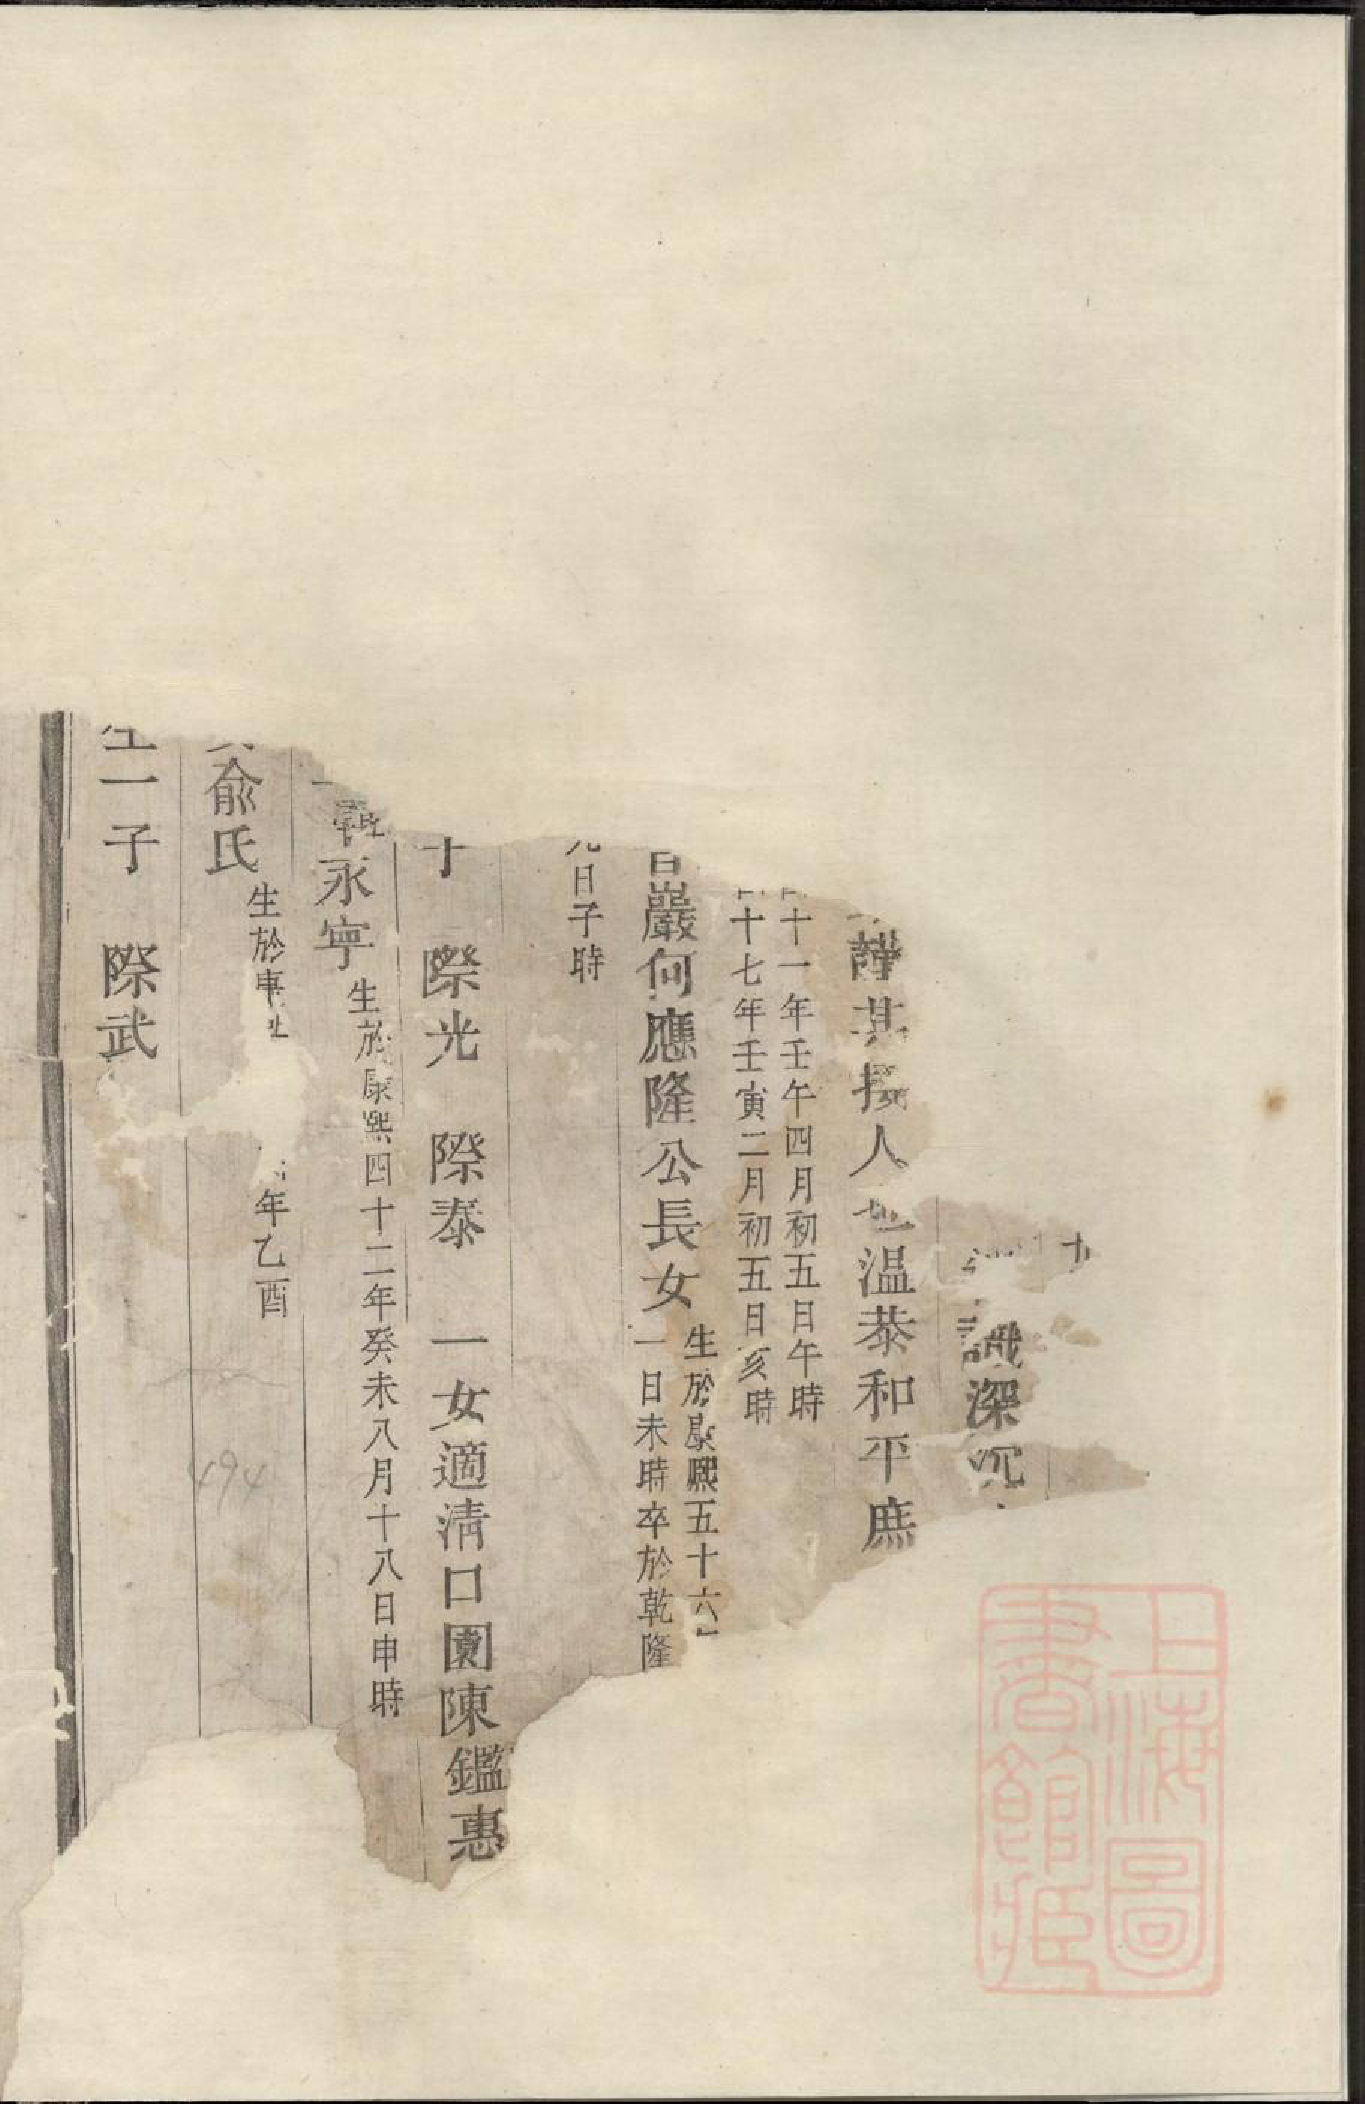 識深沉
謹其接人也温恭和平庶
十一年壬午四月初五日午時
十七年壬寅二月初五日亥時
巖何應隆公長女
生於康熙五十六
一日未時卒於乾隆
日子時
際光 際泰 一女適清口園陳鑑惠
永寧
生於康熙四十二年癸未八月十八日申時
俞氏
生於
年乙酉
生一子 際武
494
上海圖
書館藏